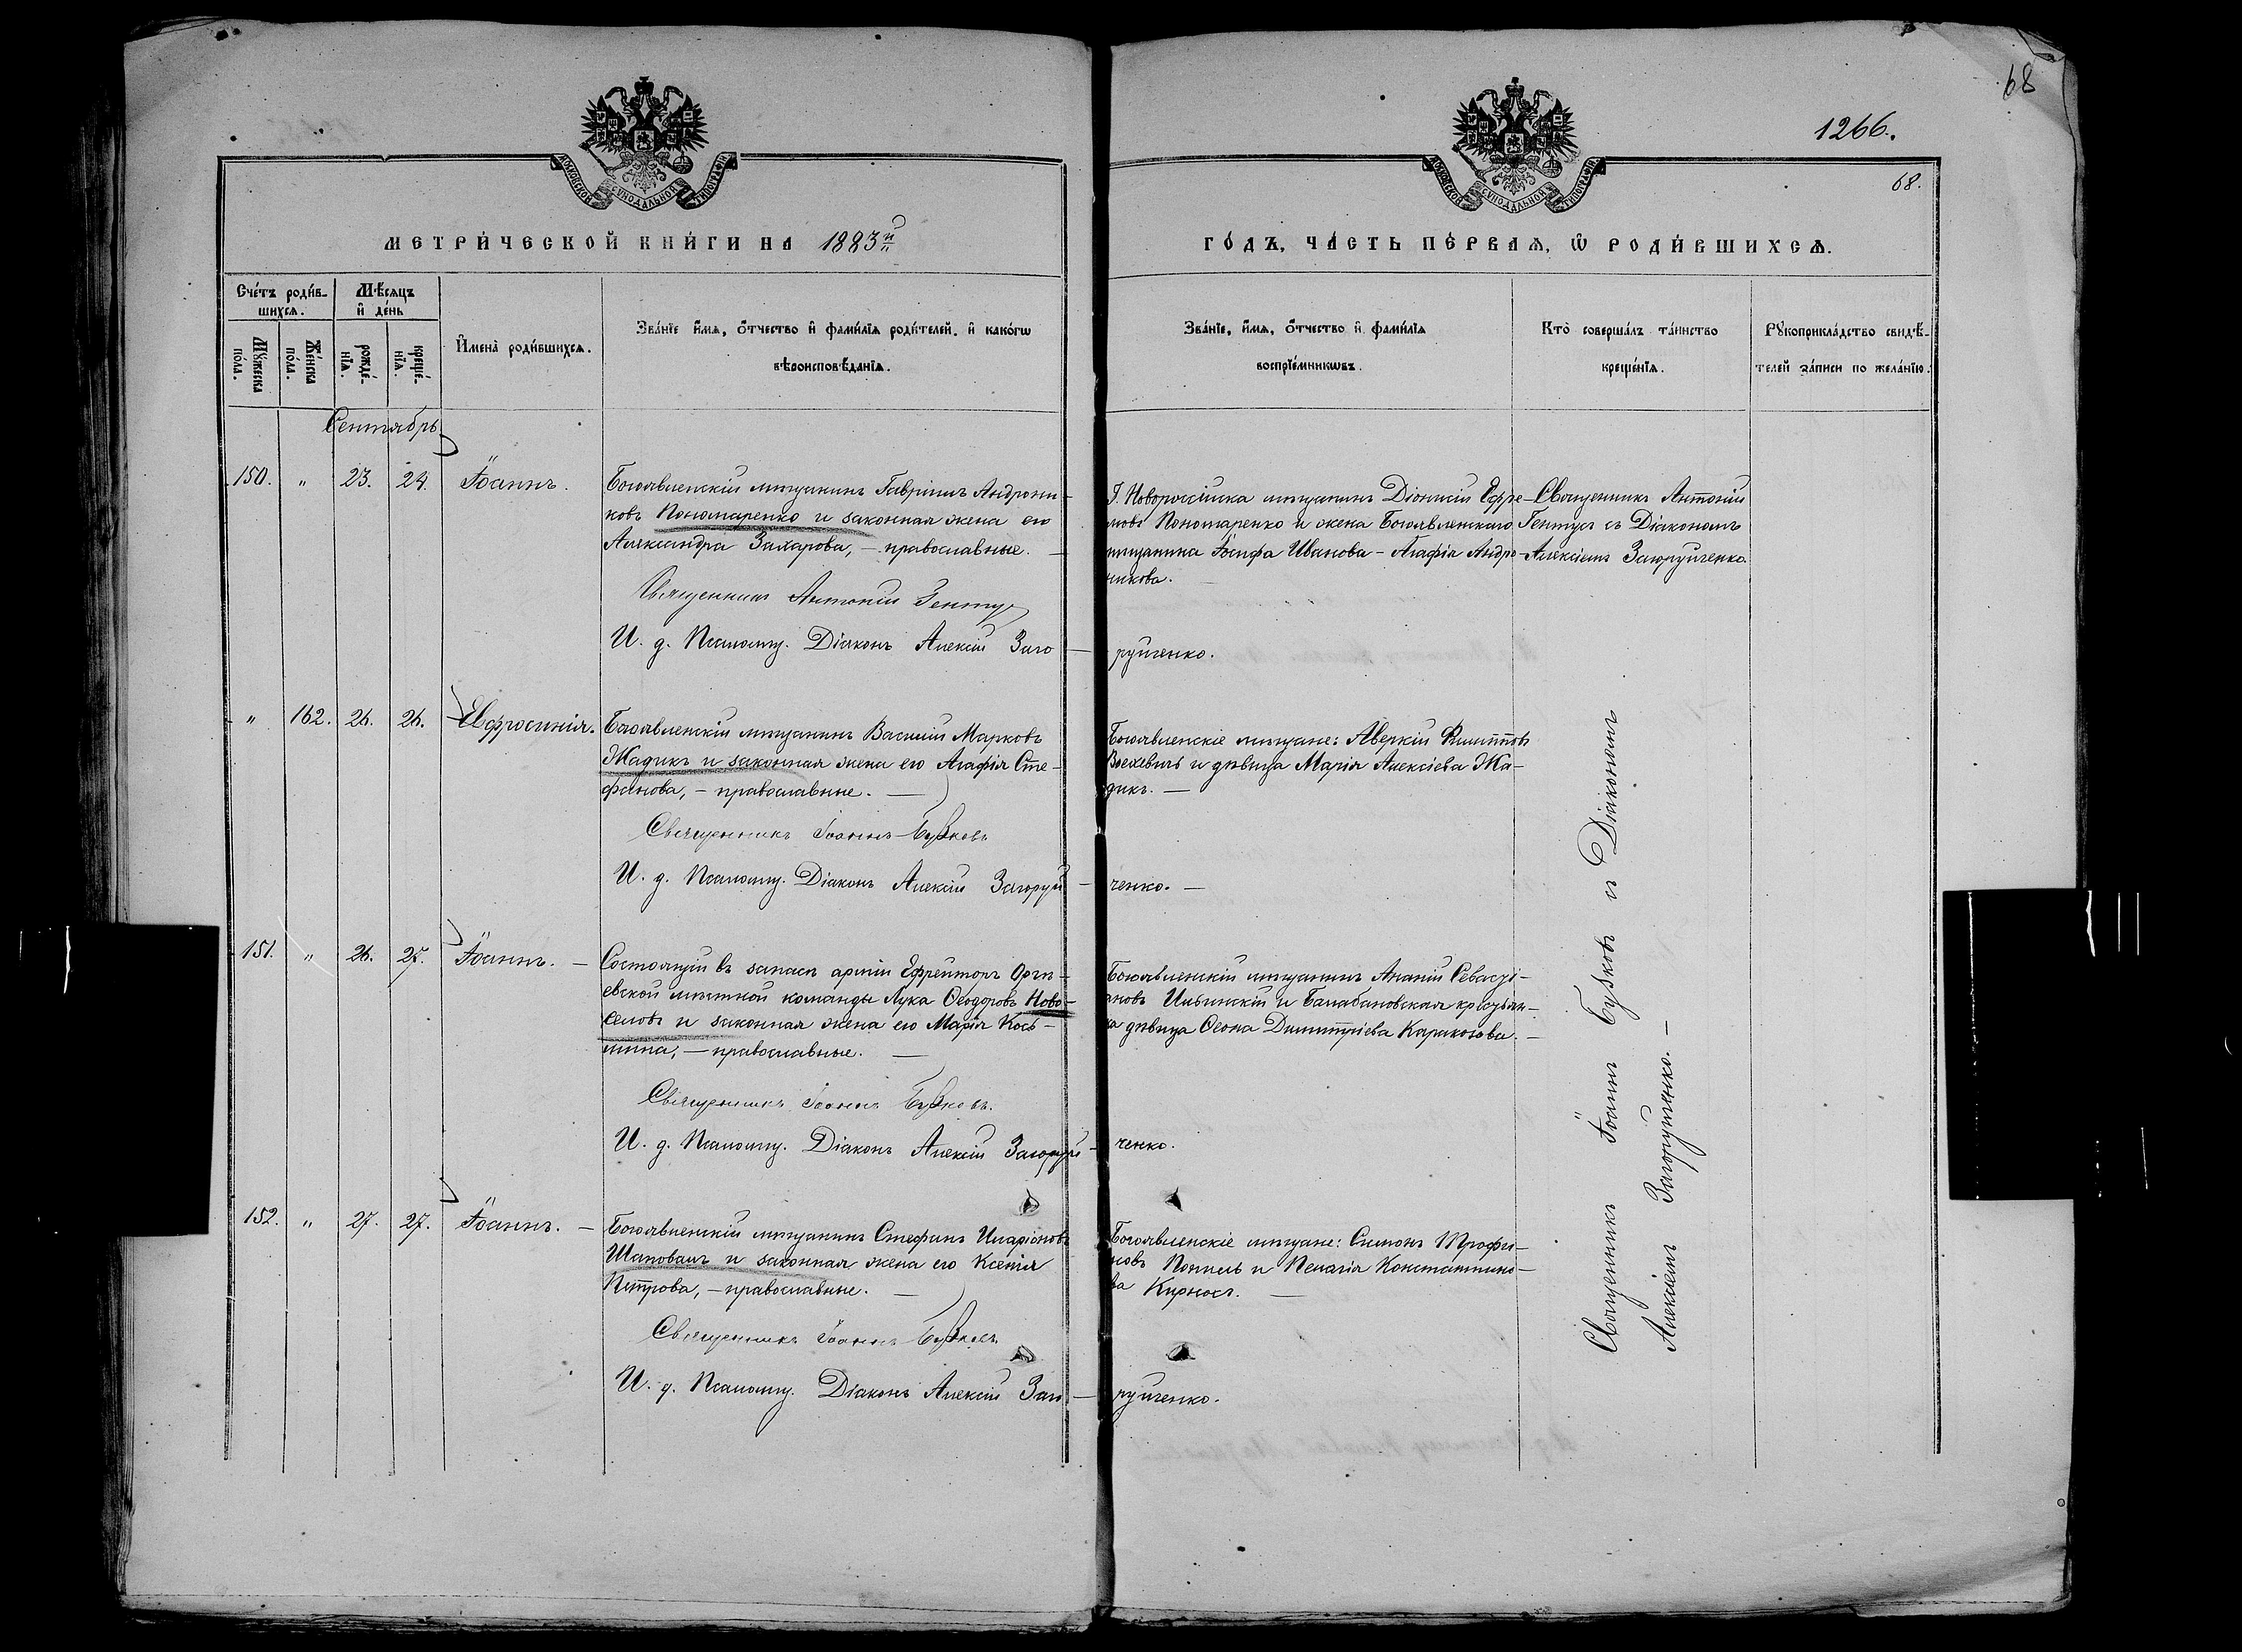 68
1266.
68.
МОСКОВСКОЙ СѴНОДАЛЬНОЙ ТИПОГРАФІИ
МОСКОВСКОЙ СѴНОДАЛЬНОЙ ТИПОГРАФІИ
МЕТРИ́ЧЕСКОЙ КНИ́ГИ НА 1883й
ГО́ДЪ, ЧА́СТЬ ПЕ́РВАѦ, Ѡ҆ РОДИ́ВШИХСѦ.
Сче́тъ роди́в-
шихсѧ.
Мѣ́сѧцъ
и҆ де́нь
Мꙋ́жеска по́ла.
Же́нска по́ла.
рожде́нїѧ.
креще́нїѧ.
И҆мена̀ роди́вшихсѧ.
Зва́нїе и҆́мѧ, ѻ҆́тчество и҆ фами́лїѧ роди́телей, и҆ како́гѡ
вѣроисповѣ́данїѧ.
Зва́нїе, и҆́мѧ, ѻ҆́тчество и҆ фами́лїѧ
воспрїе́мникѡвъ.
Кто̀ соверша́лъ та́инство
креще́нїѧ.
Рꙋкоприкла́дство свидѣ́-
телей за́писи по жела́нїю.
Сентябрь
150. " 23. 24. Іоаннъ.
Богоявленскій мѣщанинъ Гавріилъ Андрони-
ковъ Пономаренко и законная жена его
Александра Захарова, – православные. –
Священникъ Антоній Гентуз
И. д. Псаломщ. Діаконъ Алексій Заго –
Г. Новороссійска мѣщанинъ Діонисій Ефре-
мовъ Пономаренко и жена Богоявленскаго
мѣщанина Іосифа Иванова – Агафія Андро-
никова.
руйченко.
Священникъ Антоній
Гентуз съ Діакономъ
Алексіемъ Загоруйченко.
" 162. 26. 26. Евфросинія.
Богоявленскій мѣщанинъ Василій Марковъ
Жадикъ и законная жена его Агафія Сте-
фанова, – православные. –
Священникъ Іоаннъ Бузковъ
И. д. Псаломщ. Діаконъ Алексій Загоруй –
Богоявленскіе мѣщане: Аверкій Филипповъ
и дѣвица Марія Алексіева Жа-
дикъ. –
ченко. –
151. " 26. 27. Іоаннъ. –
Состоящій въ запасѣ арміи Ефрейторъ Орги-
евской мѣстной команды Лука Ѳеодоровъ Ново-
селовъ и законная жена его Марія Кось-
мина, – православные. –
Священникъ Іоаннъ Бузковъ.
И. д. Псаломщ. Діаконъ Алексій Загоруй –
Богоявленскій мѣщанинъ Ананій Севасті-
ановъ Ильинскій и Балабановская крестьян-
ка дѣвица Ѳеона Димитріева Каракозова. –
ченко.
152. " 27. 27. Іоаннъ. –
Богоявленскій мѣщанинъ Стефанъ Иларіоновъ
Шаповалъ и законная жена его Ксенія
Петрова, – православные. –
Священникъ Іоаннъ Бузковъ
И. д. Псаломщ. Діаконъ Алексій Заго –
Богоявленскіе мѣщане: Симонъ Трофи-
мовъ Поппель и Пелагія Константино-
ва Кирносъ. –
руйченко.
Священникъ Іоаннъ Бузковъ съ Діакономъ
Алексіемъ Загоруйченко. –